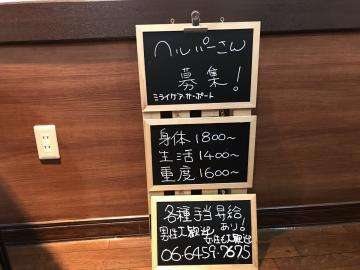 ヘルパーさん
募集!
ミライケアサポート
身体1800~
生活1400~
重度1600~
各種手当昇給
あり!
男性大歓迎
女性も大歓迎
06-6459-7675